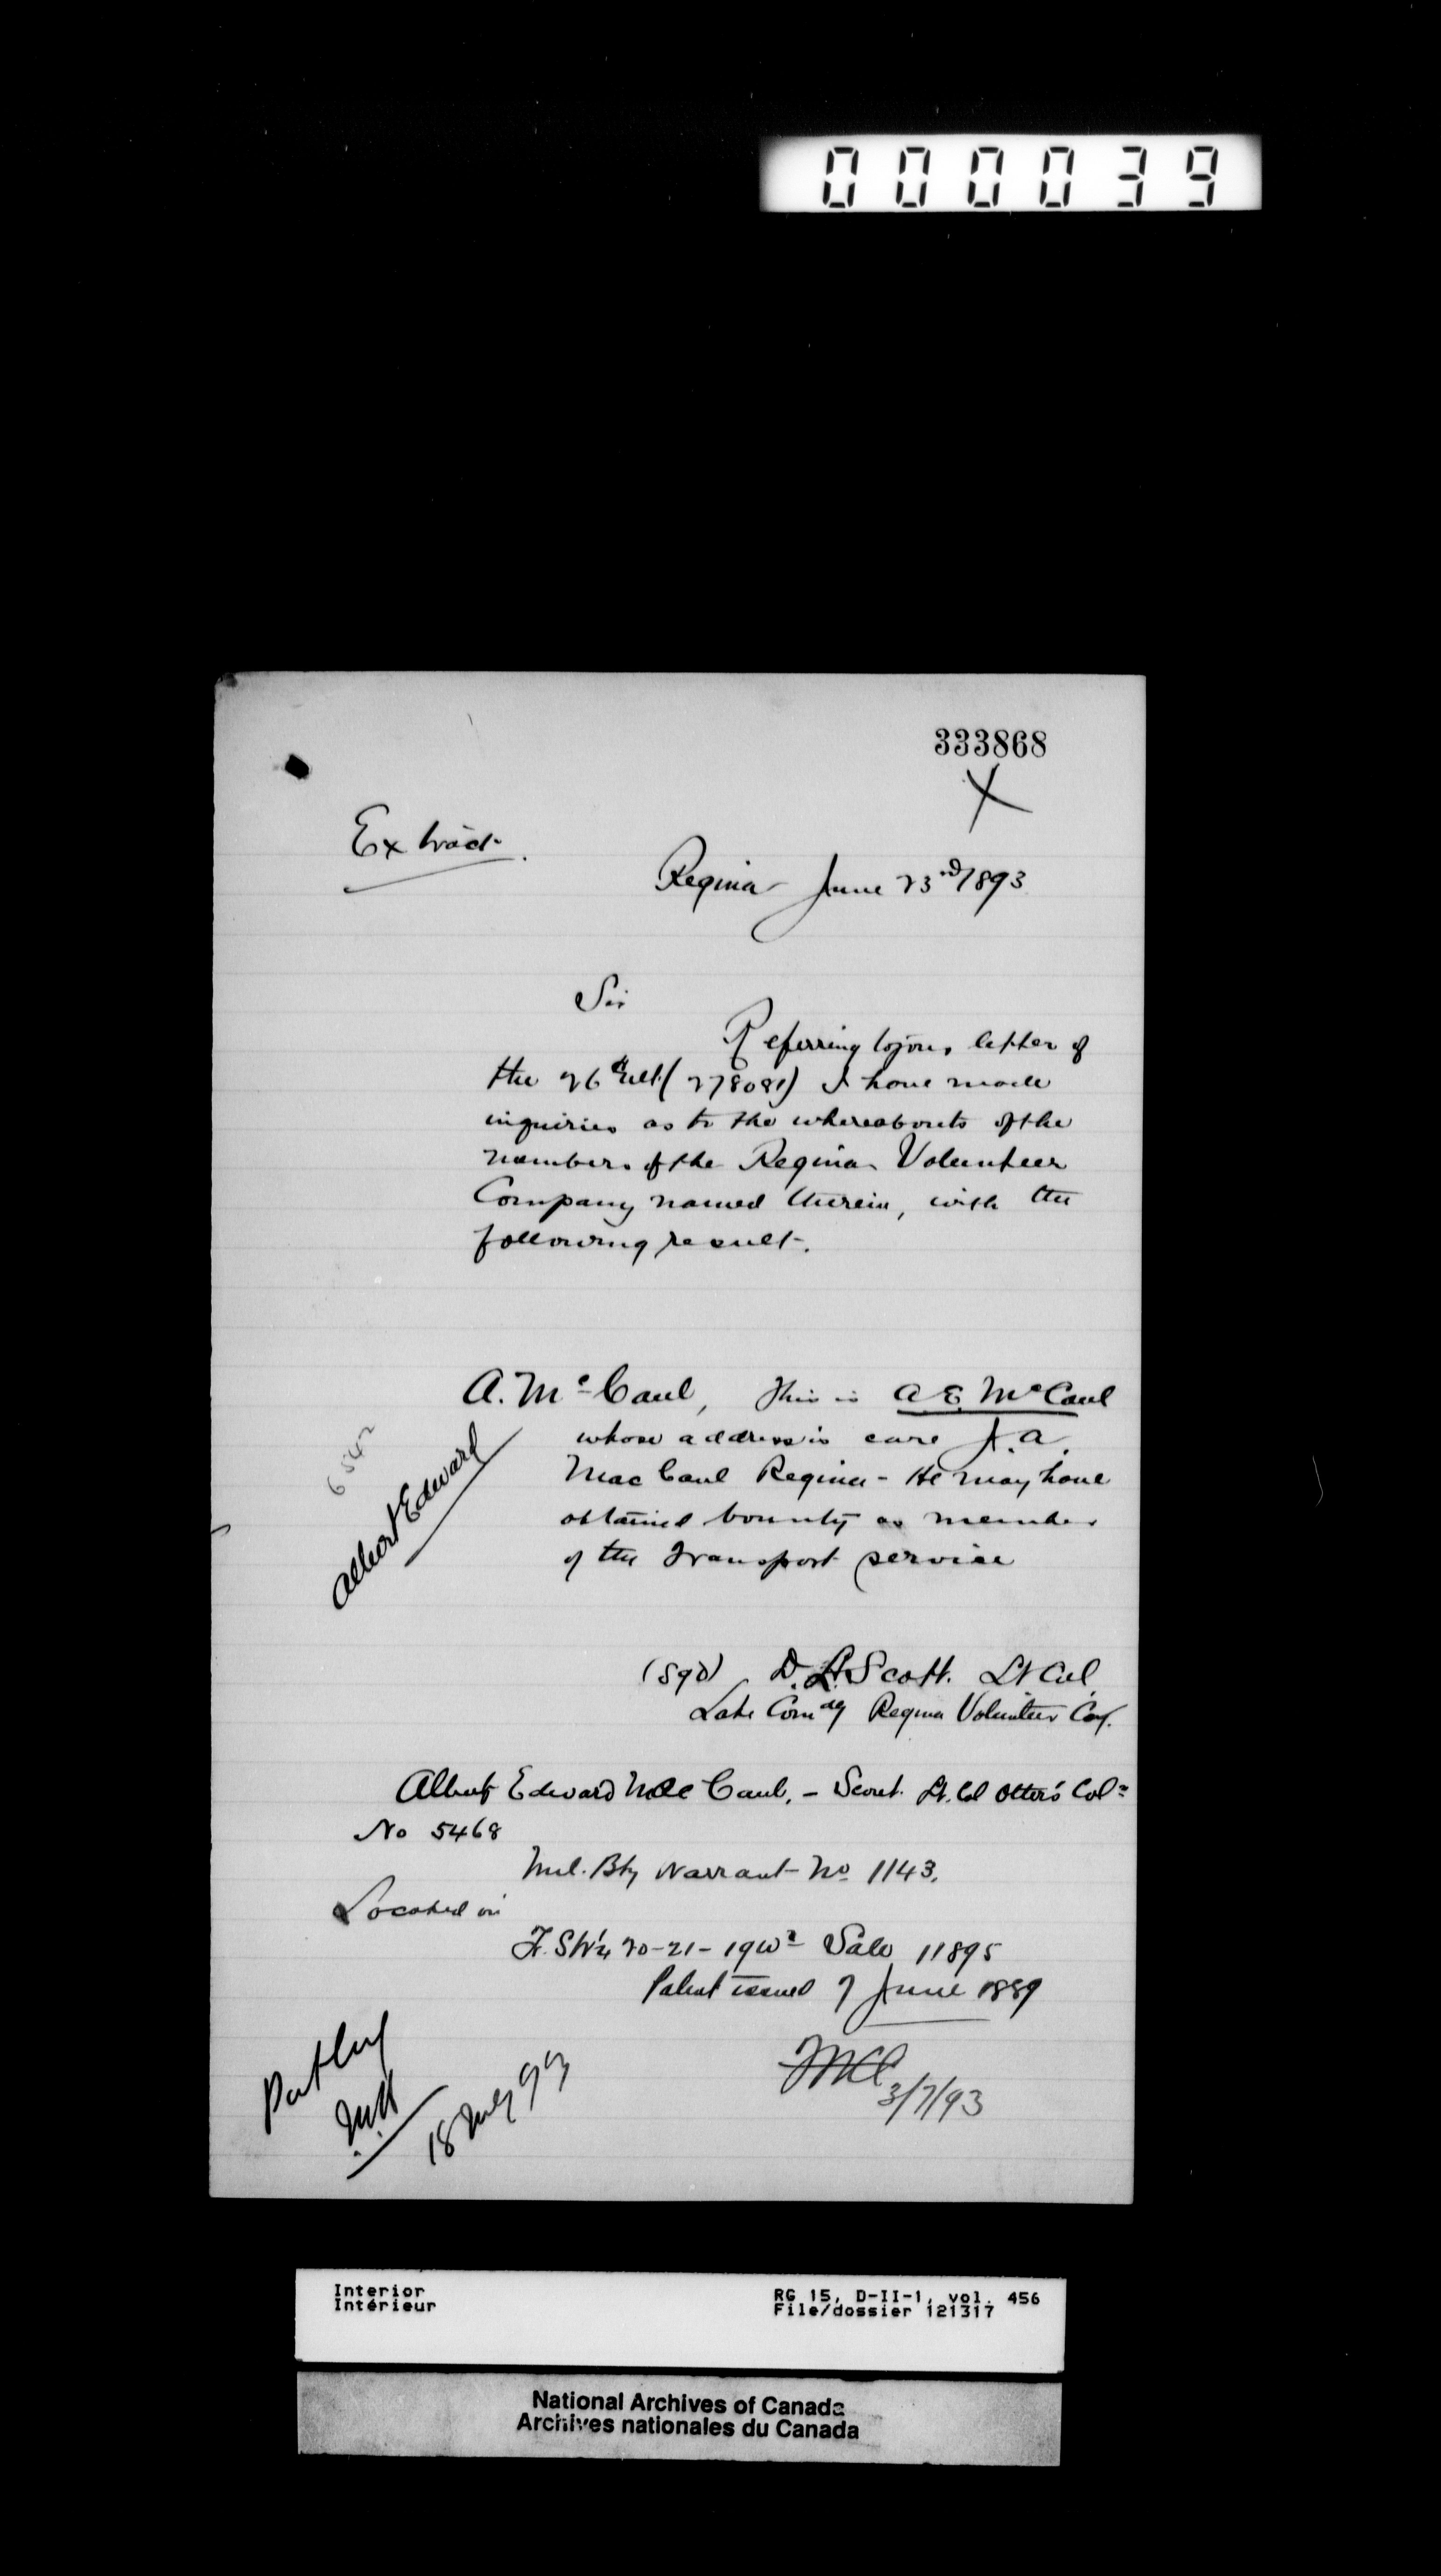 000039
333868
X
Extract
Regina June 23rd 1893
Sir
Referring to your letter of
the 26th ult. (278081) I have made
inquiries as to the whereabouts of the
members of the Regina Volunteer
Company named therein, with the
following result.
A. Mc Caul, This is A. E. McCaul
whose address is care J. A.
MacCaul Regina - He may have
obtained bounty as member
of the Transport service
6542
Albert Edward
(Sgd) D. L. Scott. Lt Col.
Late Comdg Regina Volunteer Coy.
Albert Edward MacCaul. - Scout. Lt. Col Otter's Coln
No 5468
Mil. Bty Warrant No 1143.
Located in
SW¼ 20-21-19 W2 Sale 11895
Patent issued 7 June 1889
3/7/93
18 July 93
Interior
Intérieur
RG 15, D-II-1, vol. 456
File/dossier 121317
National Archives of Canada
Archives nationales du Canada